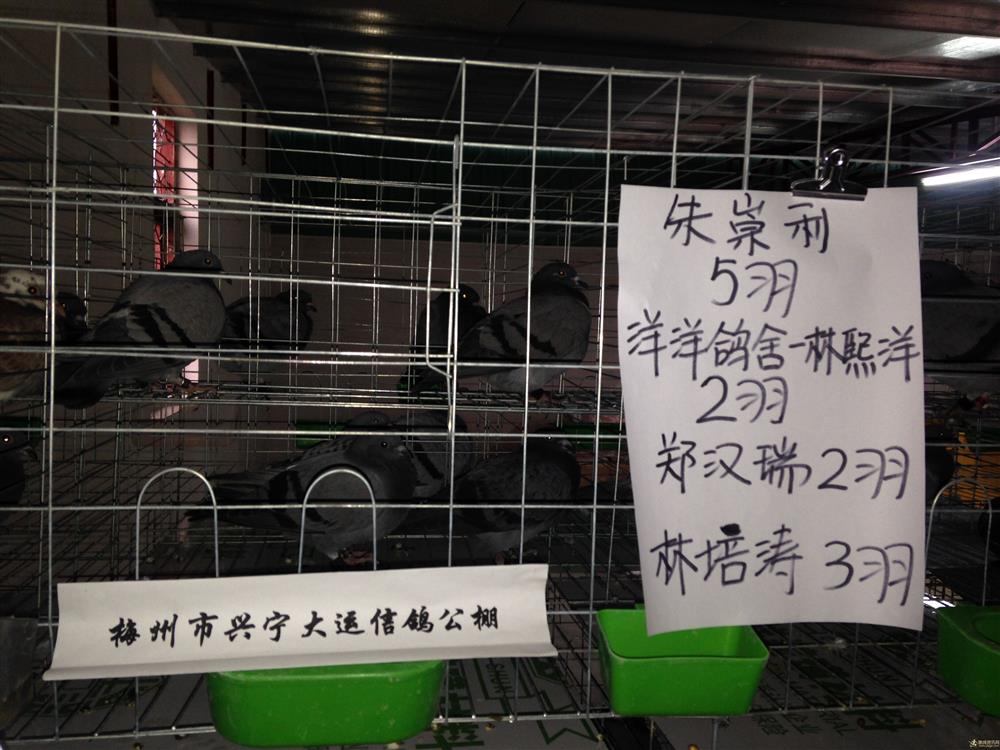 朱崇利
5羽
洋洋鸽舍-林熙洋
2羽
郑汉瑞2羽
林培涛 3羽
梅州市兴宁大运信鸽公棚